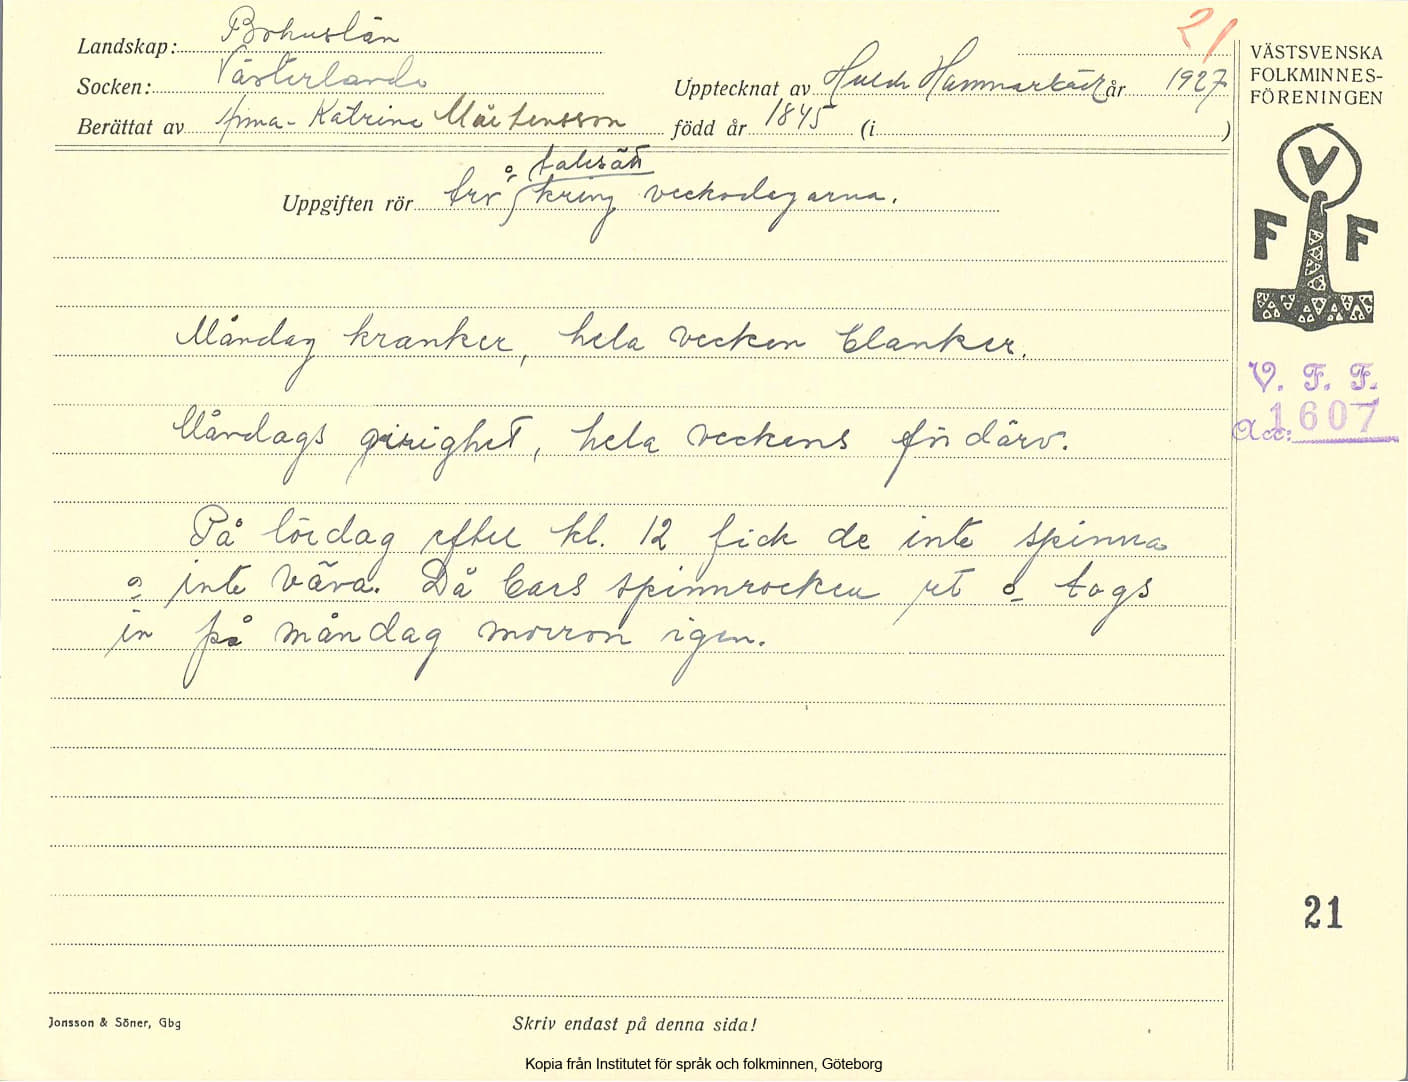 21
Landskap: Bohuslän
Socken: Västerlanda
Upptecknat av Huldi Hammarbäck år 1927
Berättat av Anna-Katrina Mårtensson född år 1845 (i )
Uppgiften rör tro o talesätt kring veckodagarna.
VÄSTSVENSKA
FOLKMINNES-
FÖRENINGEN
V
F F
V. F. F.
Acc: 1607
Måndag kranker, hela vecken blanker.
Måndags girighet, hela veckens fördärv.
På lördag efter kl. 12 fick de inte spinna
o inte väva. Då bars spinnrocken ut o togs
in på måndag morron igen.
21
Jonsson & Söner, Gbg
Skriv endast på denna sida!
Kopia från Institutet för språk och folkminnen, Göteborg